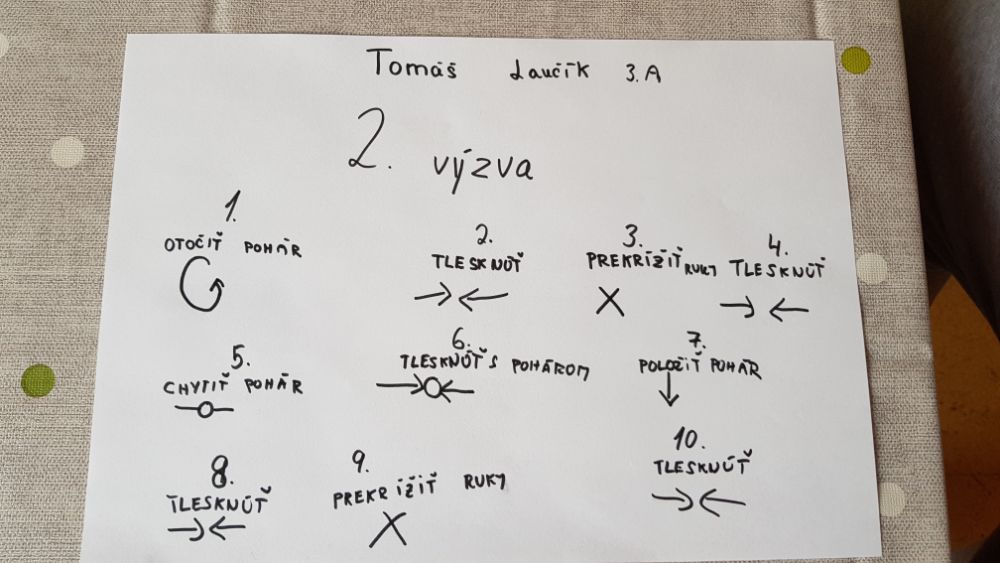 Tomáš Laučík 3.A
2. výzva
1.
OTOČIŤ POHÁR
2.
TLESKNÚŤ
3.
PREKRÍŽIŤ RUKY
4.
TLESKNÚŤ
5.
CHYTIŤ POHÁR
6.
TLESKNÚŤ S POHÁROM
7.
POLOŽIŤ POHÁR
8.
TLESKNÚŤ
9.
PREKRÍŽIŤ RUKY
10.
TLESKNÚŤ